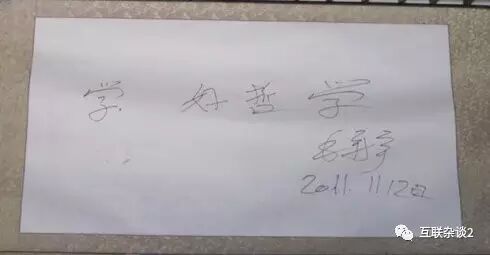 学 好哲学
毛新宇
2011. 11 12日
互联杂谈2